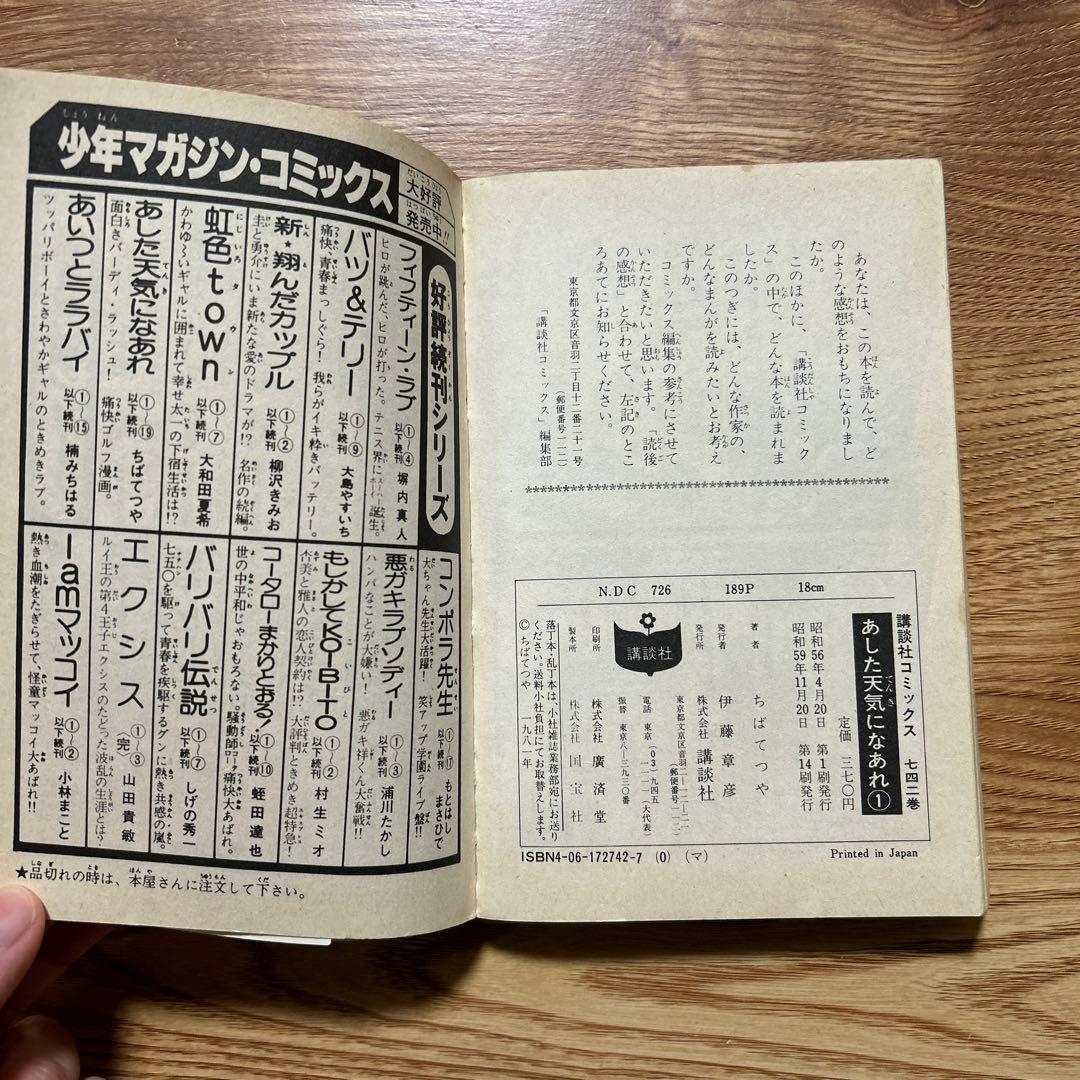 少年マガジン・コミックス
しょうねん
大好評
だいこうひょう
発売中!!
はつばいちゅう
好評続刊シリーズ
フィフティーン・ラブ ①~④ 以下続刊 塀内真人
ヒロが跳んだ、ヒロが打った。テニス界にスーパーボーイ誕生。
バツ&テリー ①~⑨ 以下続刊 大島やすいち
痛快、青春まっしぐら!我らがイキ粋きバッテリー。
新★翔んだカップル ①~② 以下続刊 柳沢きみお
圭と勇介にいま新たな愛のドラマが!?名作の続編。
虹色town ①~⑦ 以下続刊 大和田夏希
にじいろタウン
かわゆ~いギャルに囲まれて幸せ太一の下宿生活は!?
あした天気になあれ ①~⑲ 以下続刊 ちばてつや
面白さバーディ・ラッシュ!痛快ゴルフ漫画。
あいつとララバイ ①~⑮ 以下続刊 楠みちはる
ツッパリボーイとさわやかギャルのときめきラブ。
コンポラ先生 ①~⑰ 以下続刊 もとはしまさひで
大ちゃん先生大活躍!笑アップ学園ライブ盤!!
悪ガキラプンディー ①~② 以下続刊 浦川たかし
ハンパなことが大嫌い!悪ガキ祥くん大奮戦!!
もしかしてKOIBITO ①~② 以下続刊 村生ミオ
こいびと
杏美と雅人の恋人契約は!?大評判ときめき超特急!
コータローまかりとおる! ①~⑩ 以下続刊 蛭田達也
世の中平和じゃおもろない。騒動師コータロー痛快大あばれ。
バリバリ伝説 ①~⑦ 以下続刊 しげの秀一
七五〇を駆って青春を疾駆するグンに熱き共感の嵐。
エクシス ①~③(完) 山田貴敏
ルイ王の第4王子エクシスのたどった波乱の生涯とは?
I amマッコイ ①~② 以下続刊 小林まこと
熱き血潮をたぎらせて、怪童マッコイ大あばれ!!
★品切れの時は、本屋さんに注文して下さい。
あなたは、この本を読んで、ど
のような感想をおもちになりまし
たか。
このほかに、「講談社コミック
ス」の中で、どんな本を読まれま
したか。
このつぎには、どんな作家の、
どんなまんがを読みたいとお考え
ですか。
コミックス編集の参考にさせて
いただきたいと思います。「読後
の感想」と合わせて、左記のとこ
ろあてにお知らせください。
東京都文京区音羽二丁目十二番二十一号
(郵便番号一一二)
「講談社コミックス」編集部
N.D.C 726 189P 18cm
講談社コミックス 七四二巻
あした天気になあれ①
てんき
昭和56年4月20日 第1刷発行
昭和59年11月20日 第14刷発行
定価 三七〇円
著者 ちばてつや
発行者 伊藤章彦
発行所 株式会社 講談社
東京都文京区音羽二―一二―二一
(郵便番号一一二)
電話 東京(03)九四五―一一一一(大代表)
振替 東京八―三九三〇番
印刷所 株式会社 廣済堂
製本所 株式会社 国宝社
講談社
落丁本・乱丁本は、小社雑誌業務部宛にお送り
ください。送料小社負担にてお取替えします。
©ちばてつや 一九八一年
ISBN4-06-172742-7 (0) (マ)
Printed in Japan